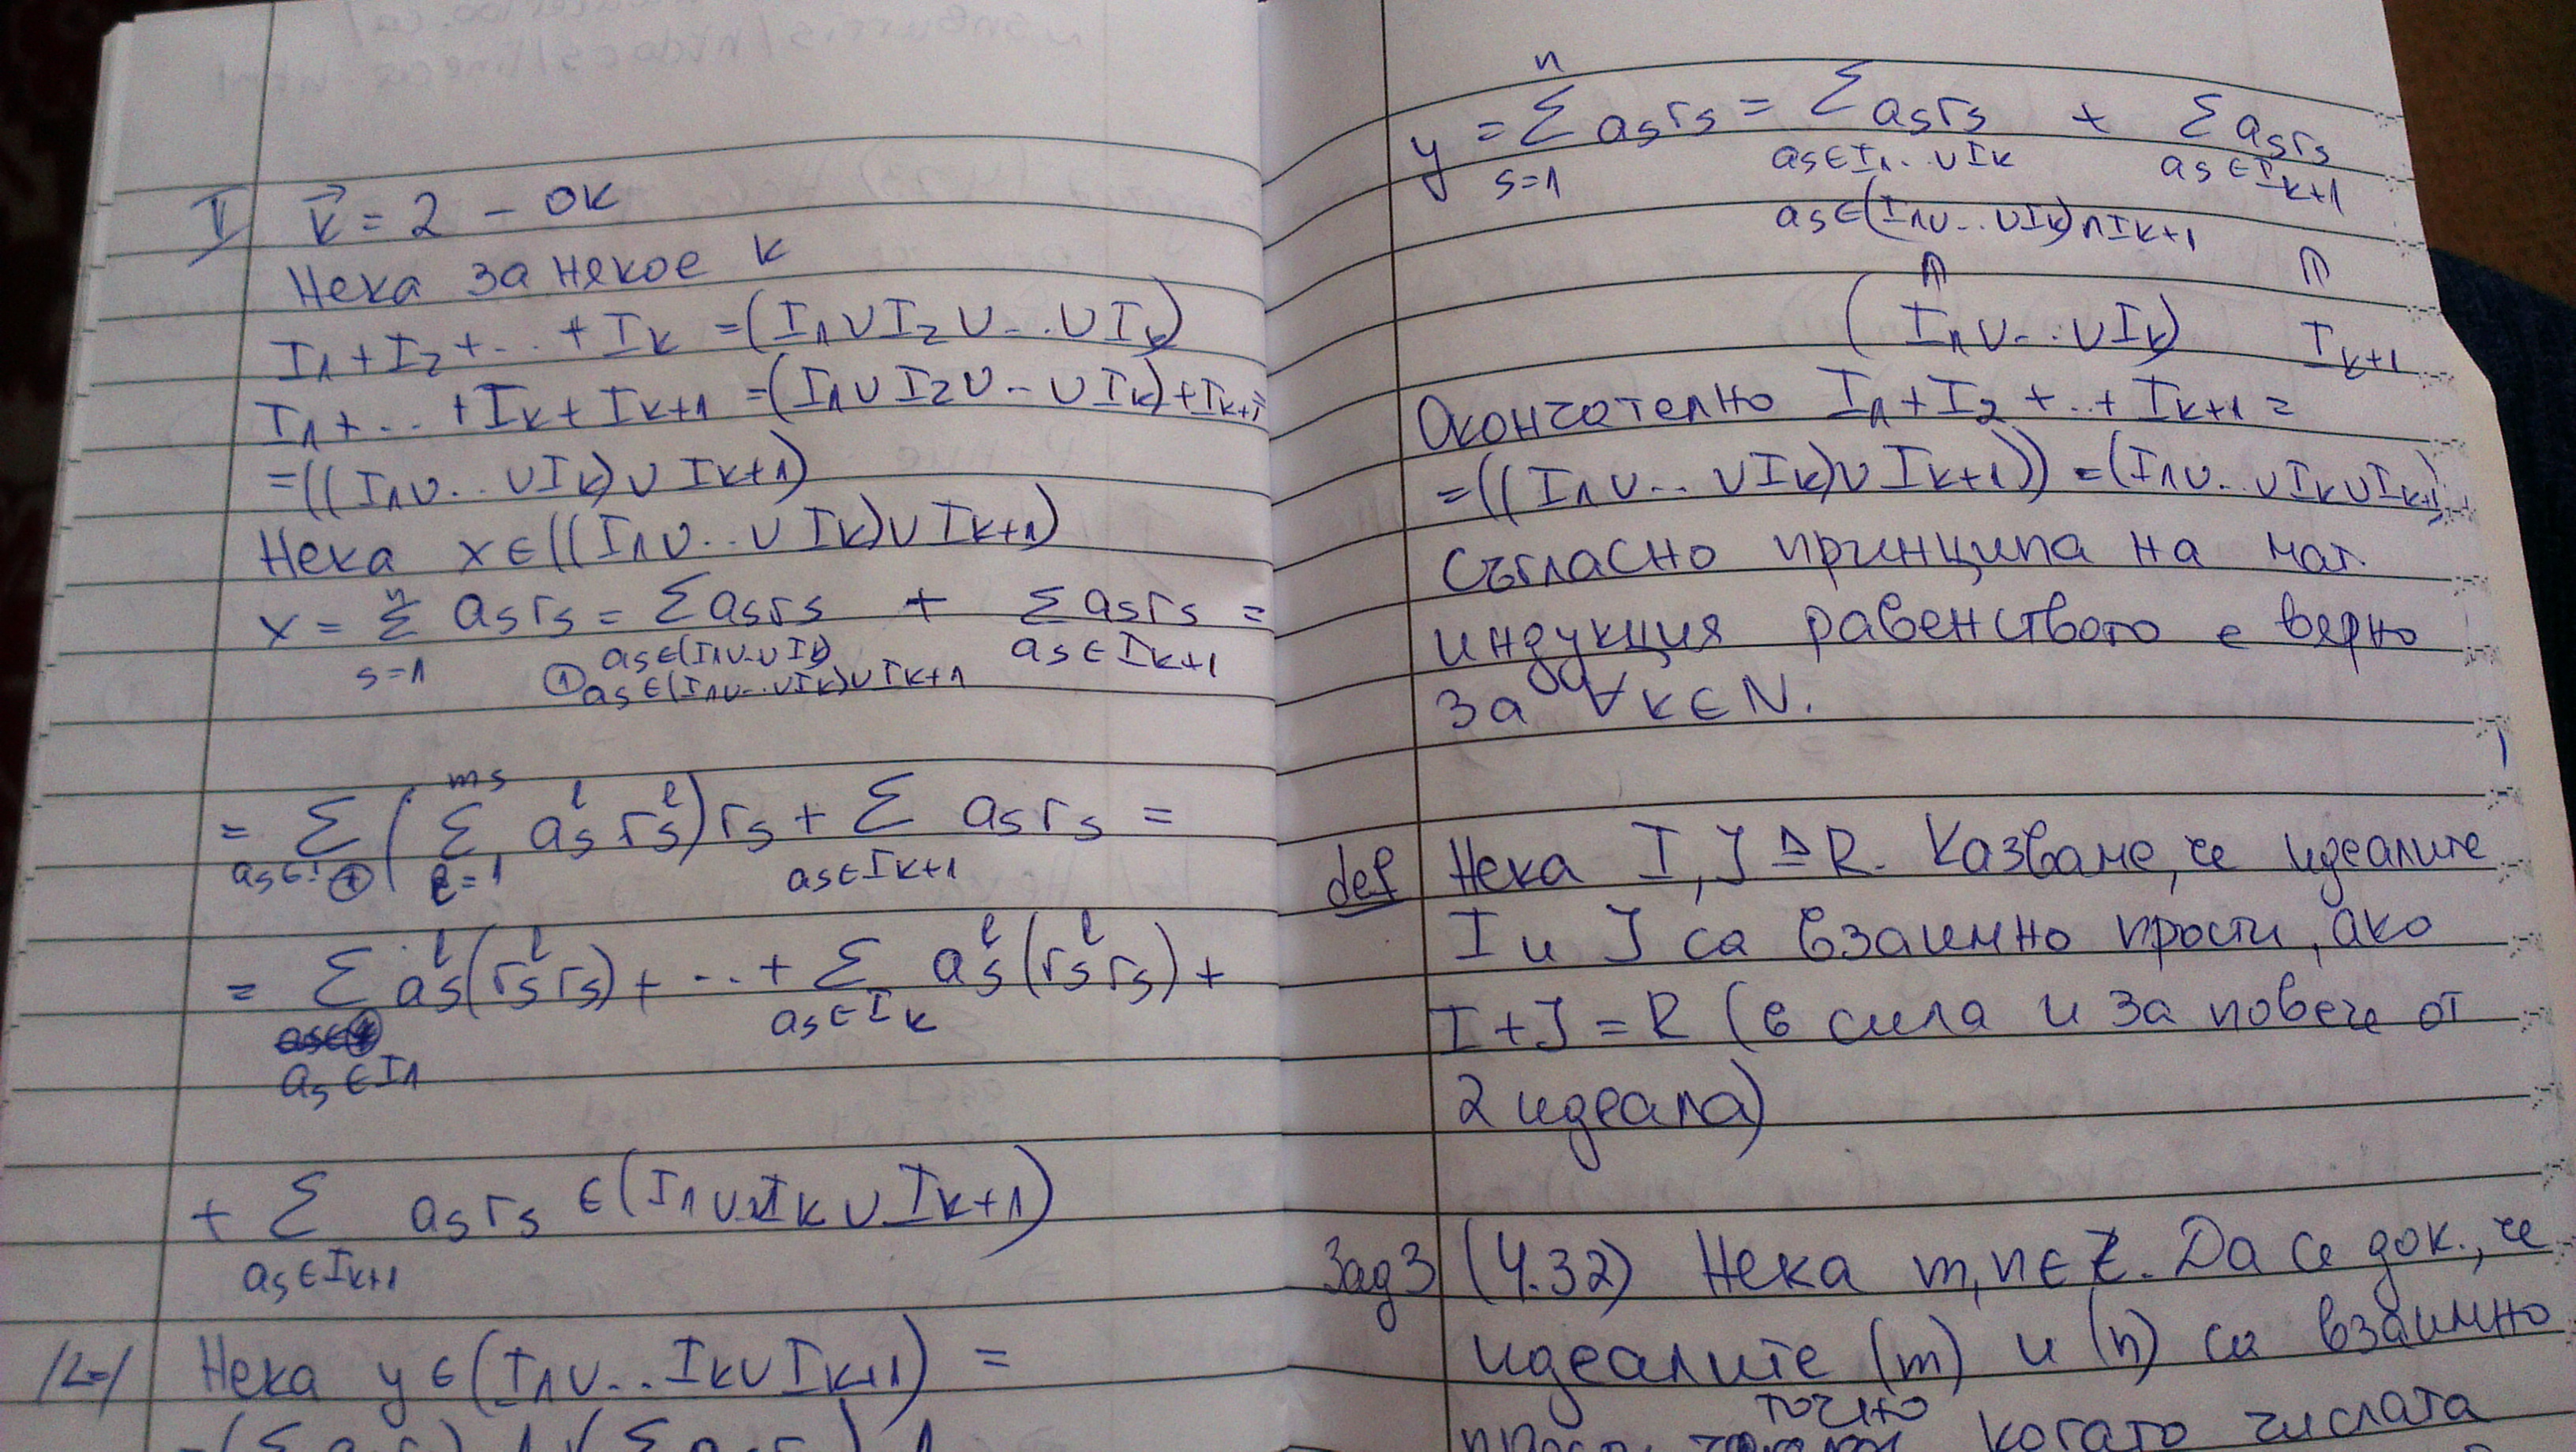 II k = 2 – OK
Нека за някое k
I₁ + I₂ + .. + Iₖ = (I₁ ∪ I₂ ∪ .. ∪ Iₖ)
I₁ + .. + Iₖ + Iₖ₊₁ = (I₁ ∪ I₂ ∪ .. ∪ Iₖ) + Iₖ₊₁ =
= ((I₁ ∪ .. ∪ Iₖ) ∪ Iₖ₊₁)
Нека x ∈ ((I₁ ∪ .. ∪ Iₖ) ∪ Iₖ₊₁)
n
x = Σ aₛrₛ = Σ aₛrₛ + Σ aₛrₛ =
s=1 aₛ∈(I₁∪..∪Iₖ) aₛ∈Iₖ₊₁
① aₛ∈(I₁∪..∪Iₖ)∪Iₖ₊₁
mₛ
= Σ ( Σ aₛˡ rₛˡ) rₛ + Σ aₛrₛ =
aₛ∈① l=1 aₛ∈Iₖ₊₁
= Σ aₛˡ(rₛˡ rₛ) + .. + Σ aₛˡ(rₛˡ rₛ) +
aₛ∈Iₖ
aₛ∈I₁
+ Σ aₛrₛ ∈ (I₁ ∪ .. Iₖ ∪ Iₖ₊₁)
aₛ∈Iₖ₊₁
Нека y ∈ (I₁ ∪ .. Iₖ ∪ Iₖ₊₁) =
n
y = Σ aₛrₛ = Σ aₛrₛ + Σ aₛrₛ
s=1 aₛ∈I₁..∪Iₖ aₛ∈Iₖ₊₁
aₛ∈(I₁∪..∪Iₖ)∩Iₖ₊₁
⋒ ⋒
(I₁∪..∪Iₖ) Iₖ₊₁
Окончателно I₁ + I₂ + .. + Iₖ₊₁ =
= ((I₁ ∪ .. ∪ Iₖ) ∪ Iₖ₊₁)) = (I₁ ∪ .. ∪ Iₖ ∪ Iₖ₊₁)
Съгласно принципа на мат.
индукция равенството е вярно
за ∀ k ∈ N.
def Нека I, J ⊴ R. Казваме, че идеалите
I и J са взаимно прости, ако
I + J = R (в сила и за повече от
2 идеала)
Зад 3 (4.32) Нека m, n ∈ Z. Да се док., че
идеалите (m) и (n) са взаимно
точно
когато числата